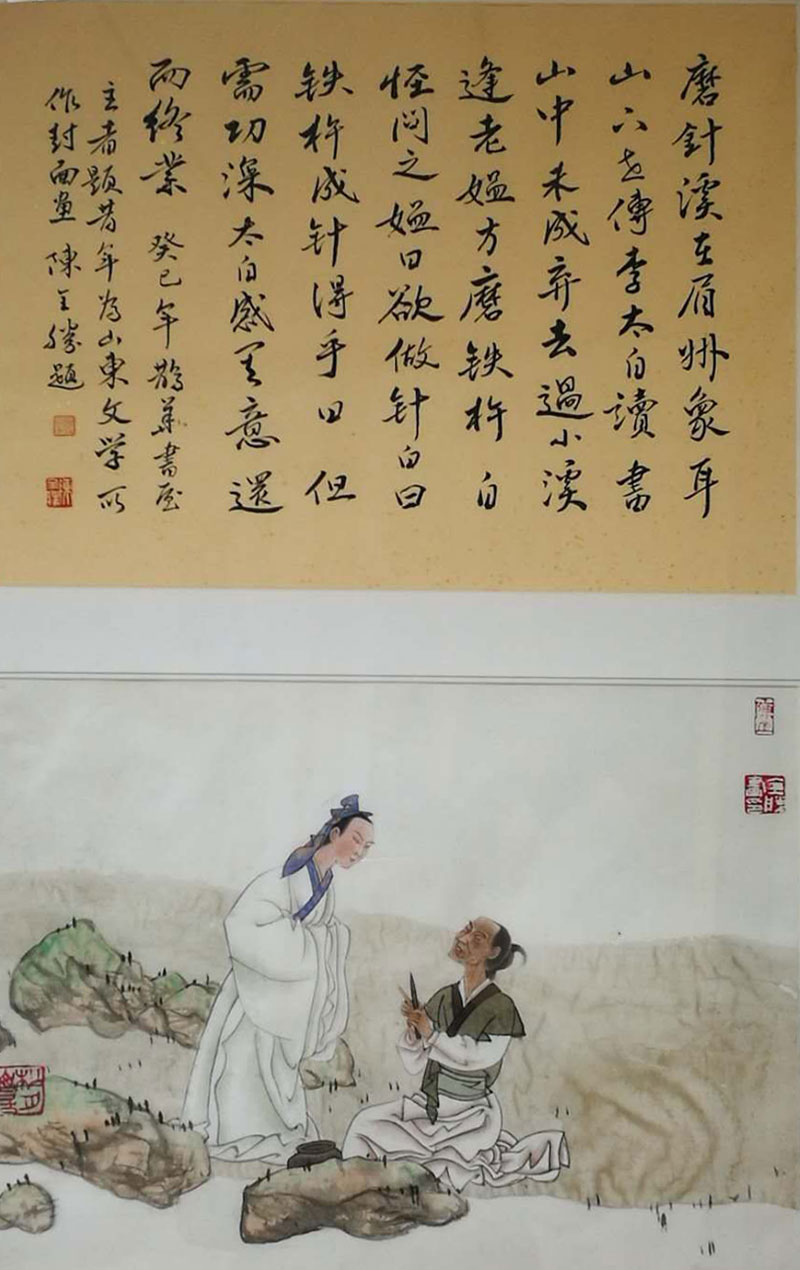 磨針溪在眉州象耳
山下世傳李太白讀書
山中未成弃去過小溪
逢老媪方磨铁杵白
怪问之媪曰欲做针白曰
铁杵成针得乎曰但
需功深太白感其意還
而终業 癸巳年鵲華書屋
主者题昔年为山東文学所
作封面畫 陳全勝題